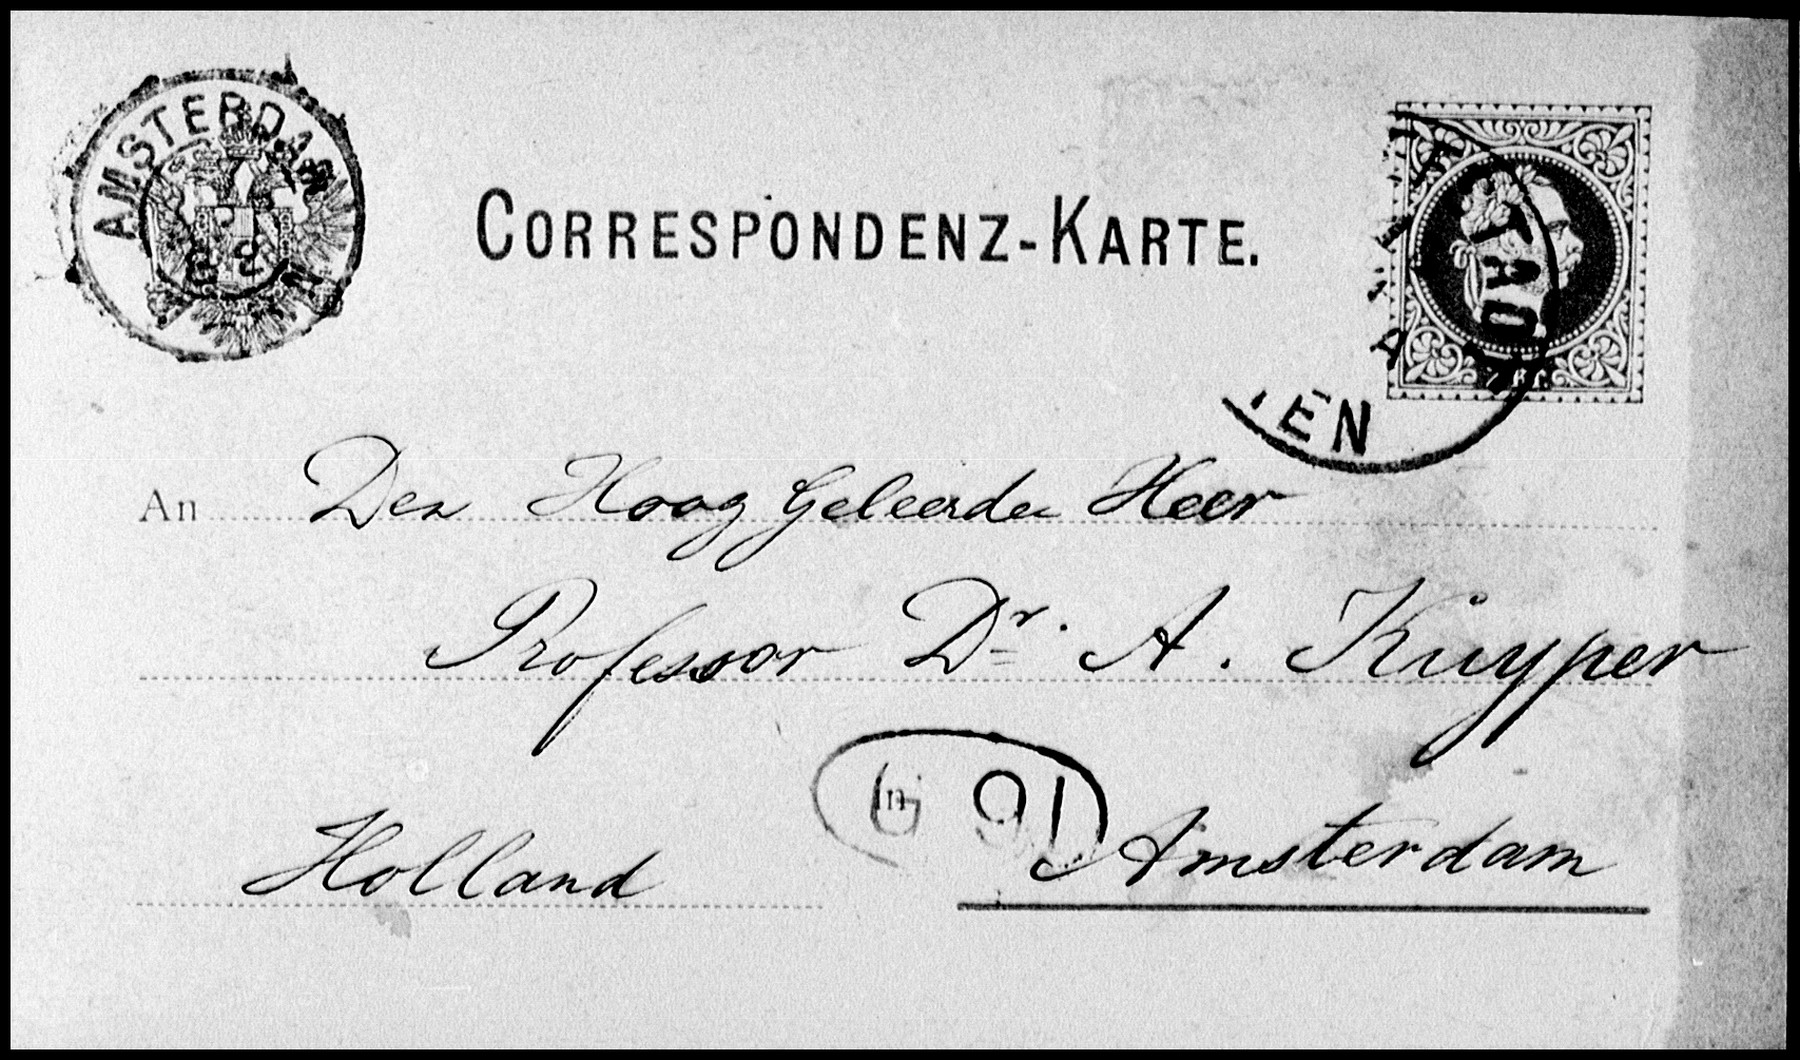 AMSTERDAM
CORRESPONDENZ-KARTE.
STADT
IEN
2 KR.
An Den Hoog Geleerden Heer
Professor Dr. A. Kuyper
in
91
Holland Amsterdam